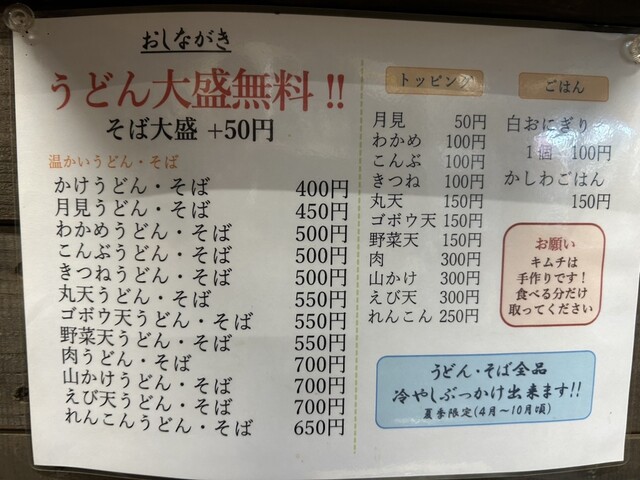 おしながき
うどん大盛無料!!
そば大盛 +50円
温かいうどん・そば
かけうどん・そば 400円
月見うどん・そば 450円
わかめうどん・そば 500円
こんぶうどん・そば 500円
きつねうどん・そば 500円
丸天うどん・そば 550円
ゴボウ天うどん・そば 550円
野菜天うどん・そば 550円
肉うどん・そば 700円
山かけうどん・そば 700円
えび天うどん・そば 700円
れんこんうどん・そば 650円
トッピング
月見 50円
わかめ 100円
こんぶ 100円
きつね 100円
丸天 150円
ゴボウ天 150円
野菜天 150円
肉 300円
山かけ 300円
えび天 300円
れんこん 250円
ごはん
白おにぎり
1個 100円
かしわごはん
150円
お願い
キムチは
手作りです!
食べる分だけ
取ってください
うどん・そば全品
冷やしぶっかけ出来ます!!
夏季限定(4月～10月頃)